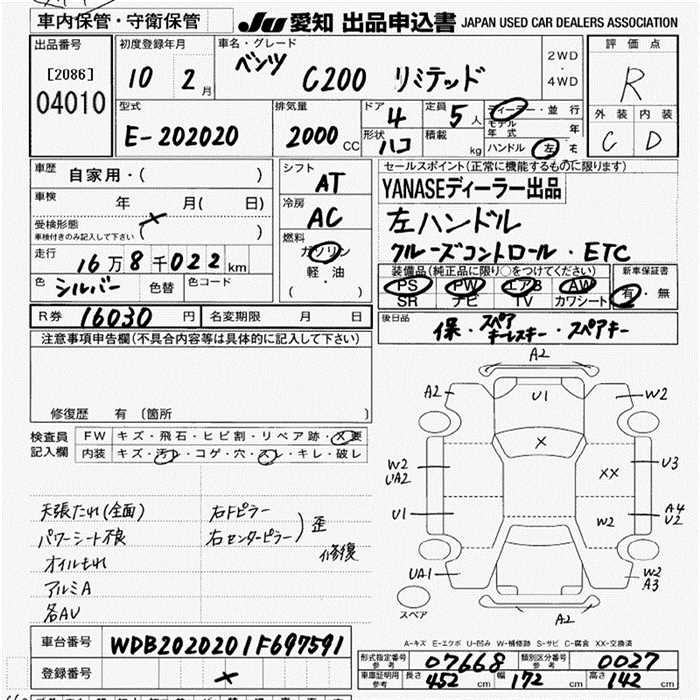 車内保管・守衛保管
JU 愛知 出品申込書 JAPAN USED CAR DEALERS ASSOCIATION
出品番号
[2086]
04010
初度登録年月
10 2 月
車名・グレード
ベンツ C200 リミテッド
2WD
・
4WD
評価点
R
外装 内装
C D
型式
E-202020
排気量
2000 CC
ドア
4
形状
ハコ
定員
5 人
積載
kg
ディーラー・並行
モデル年式 年
ハンドル 左 ・右
車歴 自家用・( )
車検 年 月( 日)
受検形態
車検付きのみ記入して下さい ( × )
走行 16万8千022 km
色 シルバー 色替 色コード
シフト
AT
冷房
AC
燃料
ガソリン
軽・油
( ・ )
セールスポイント(正常に機能するものに限ります)
YANASEディーラー出品
左ハンドル
クルーズコントロール・ETC
装備品(純正品に限り○をつけてください)
PS PW エアB AW
SR ナビ TV カワシート
新車保証書
有・無
R券 16030 円 名変期限 月 日
後日品
保・スペアキーレスキー・スペアキー
注意事項申告欄(不具合内容等は具体的に記入して下さい)
修復歴 有 (箇所 )
検査員
記入欄
FW キズ・飛石・ヒビ割・リペア跡・X要
内装 キズ・汚レ・コゲ・穴・スレ・キレ・破レ
天張たれ(全面)
パワーシート不良
オイルもれ
アルミA
各AU
右Fピラー
右センターピラー
歪
修復
A2
A2 U1 W2
X
W2
UA2
XX
U3
U1
W2
A4
U2
UA1
W2
A3
スペア
A2
A-キズ E-エクボ U-凹み W-補修跡 S-サビ C-腐食 XX-交換済
車台番号 WDB2020201F697591
登録番号 ×
形式指定番号
参考
07668
類別区分番号
参考
0027
車庫証明用
参考
長さ 452 cm 幅 172 cm 高さ 142 cm